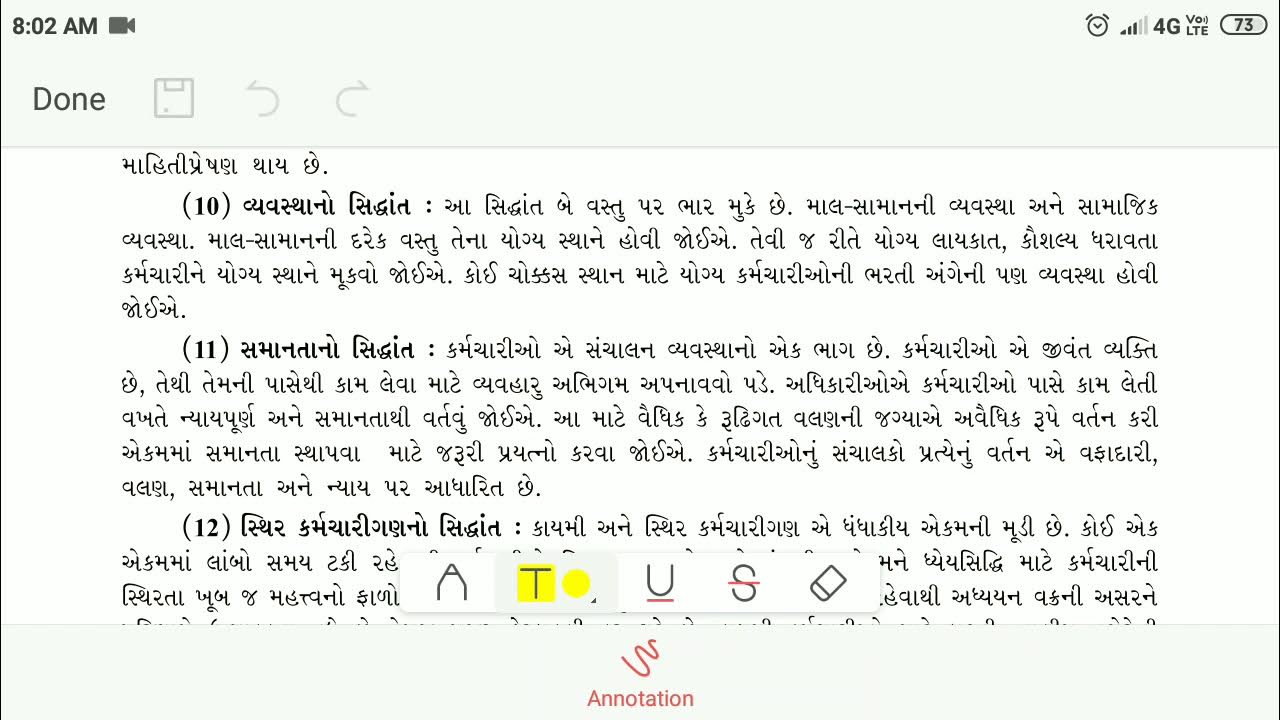 8:02 AM
4G Vo) LTE 73
Done
માહિતીપ્રેષણ થાય છે.
(10) વ્યવસ્થાનો સિદ્ધાંત : આ સિદ્ધાંત બે વસ્તુ પર ભાર મુકે છે. માલ-સામાનની વ્યવસ્થા અને સામાજિક
વ્યવસ્થા. માલ-સામાનની દરેક વસ્તુ તેના યોગ્ય સ્થાને હોવી જોઈએ. તેવી જ રીતે યોગ્ય લાયકાત, કૌશલ્ય ધરાવતા
કર્મચારીને યોગ્ય સ્થાને મૂકવો જોઈએ. કોઈ ચોક્કસ સ્થાન માટે યોગ્ય કર્મચારીઓની ભરતી અંગેની પણ વ્યવસ્થા હોવી
જોઈએ.
(11) સમાનતાનો સિદ્ધાંત : કર્મચારીઓ એ સંચાલન વ્યવસ્થાનો એક ભાગ છે. કર્મચારીઓ એ જીવંત વ્યક્તિ
છે, તેથી તેમની પાસેથી કામ લેવા માટે વ્યવહારુ અભિગમ અપનાવવો પડે. અધિકારીઓએ કર્મચારીઓ પાસે કામ લેતી
વખતે ન્યાયપૂર્ણ અને સમાનતાથી વર્તવું જોઈએ. આ માટે વૈધિક કે રૂઢિગત વલણની જગ્યાએ અવૈધિક રૂપે વર્તન કરી
એકમમાં સમાનતા સ્થાપવા માટે જરૂરી પ્રયત્નો કરવા જોઈએ. કર્મચારીઓનું સંચાલકો પ્રત્યેનું વર્તન એ વફાદારી,
વલણ, સમાનતા અને ન્યાય પર આધારિત છે.
(12) સ્થિર કર્મચારીગણનો સિદ્ધાંત : કાયમી અને સ્થિર કર્મચારીગણ એ ધંધાકીય એકમની મૂડી છે. કોઈ એક
એકમમાં લાંબો સમય ટકી ધ્યેયસિદ્ધિ માટે કર્મચારીની
સ્થિરતા ખૂબ જ મહત્ત્વનો ફાળો અધ્યયન વક્રની અસરને
A T U S
Annotation